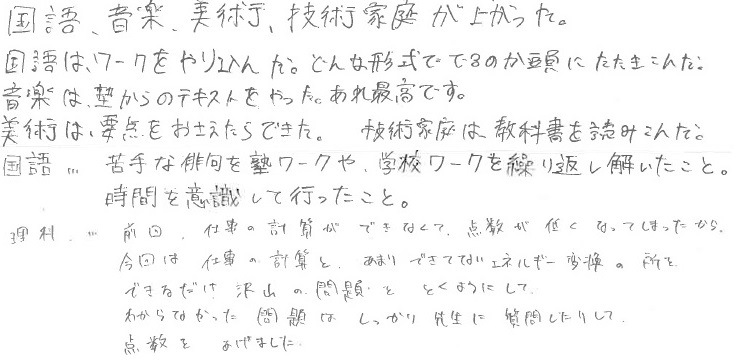 国語、音楽、美術、技術家庭が上がった。
国語は、ワークをやり込んだ。どんな形式ででるのか頭にたたきこんだ。
音楽は、塾からのテキストをやった。あれ最高です。
美術は、要点をおさえたらできた。 技術家庭は教科書を読みこんだ。
国語… 苦手な俳句を塾ワークや、学校ワークを繰り返し解いたこと。
時間を意識して行ったこと。
理科… 前回、仕事の計算ができなくて、点数が低くなってしまったから、
今回は仕事の計算と、あまりできてないエネルギー変換の所を
できるだけ沢山の問題をとくようにして、
わからなかった問題はしっかり先生に質問したりして、
点数をあげました。